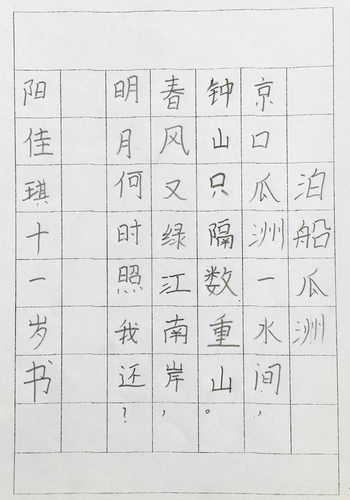 泊船瓜洲
京口瓜洲一水间，
钟山只隔数重山。
春风又绿江南岸，
明月何时照我还？
阳佳琪十一岁书